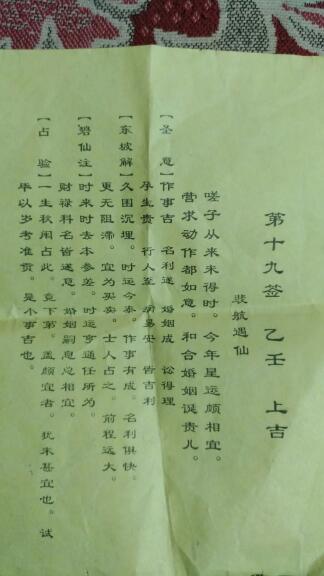 第十九签 乙壬 上吉
裴航遇仙
嗟子从来未得时。今年星运颇相宜。
营求动作都如意。和合婚姻诞贵儿。
【圣意】作事吉 名利遂 婚姻成 讼得理
孕生贵 行人至 病易安 皆吉利
【东坡解】久困沉埋。时运今泰。作事有成。名利俱快。
更无阻滞。宜为买卖。士人占之。前程远大。
【碧仙注】时来时去本参差。时运亨通任所为。
财禄科名皆遂意。婚姻嗣息总相宜。
【占验】一生秋闱占此。竟下第。盖颇宜者。犹未甚宜也。试
毕以多考准贡。是小事吉也。